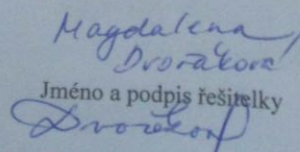 Magdalena
Dvořáková
Jméno a podpis řešitelky
Dvořáková